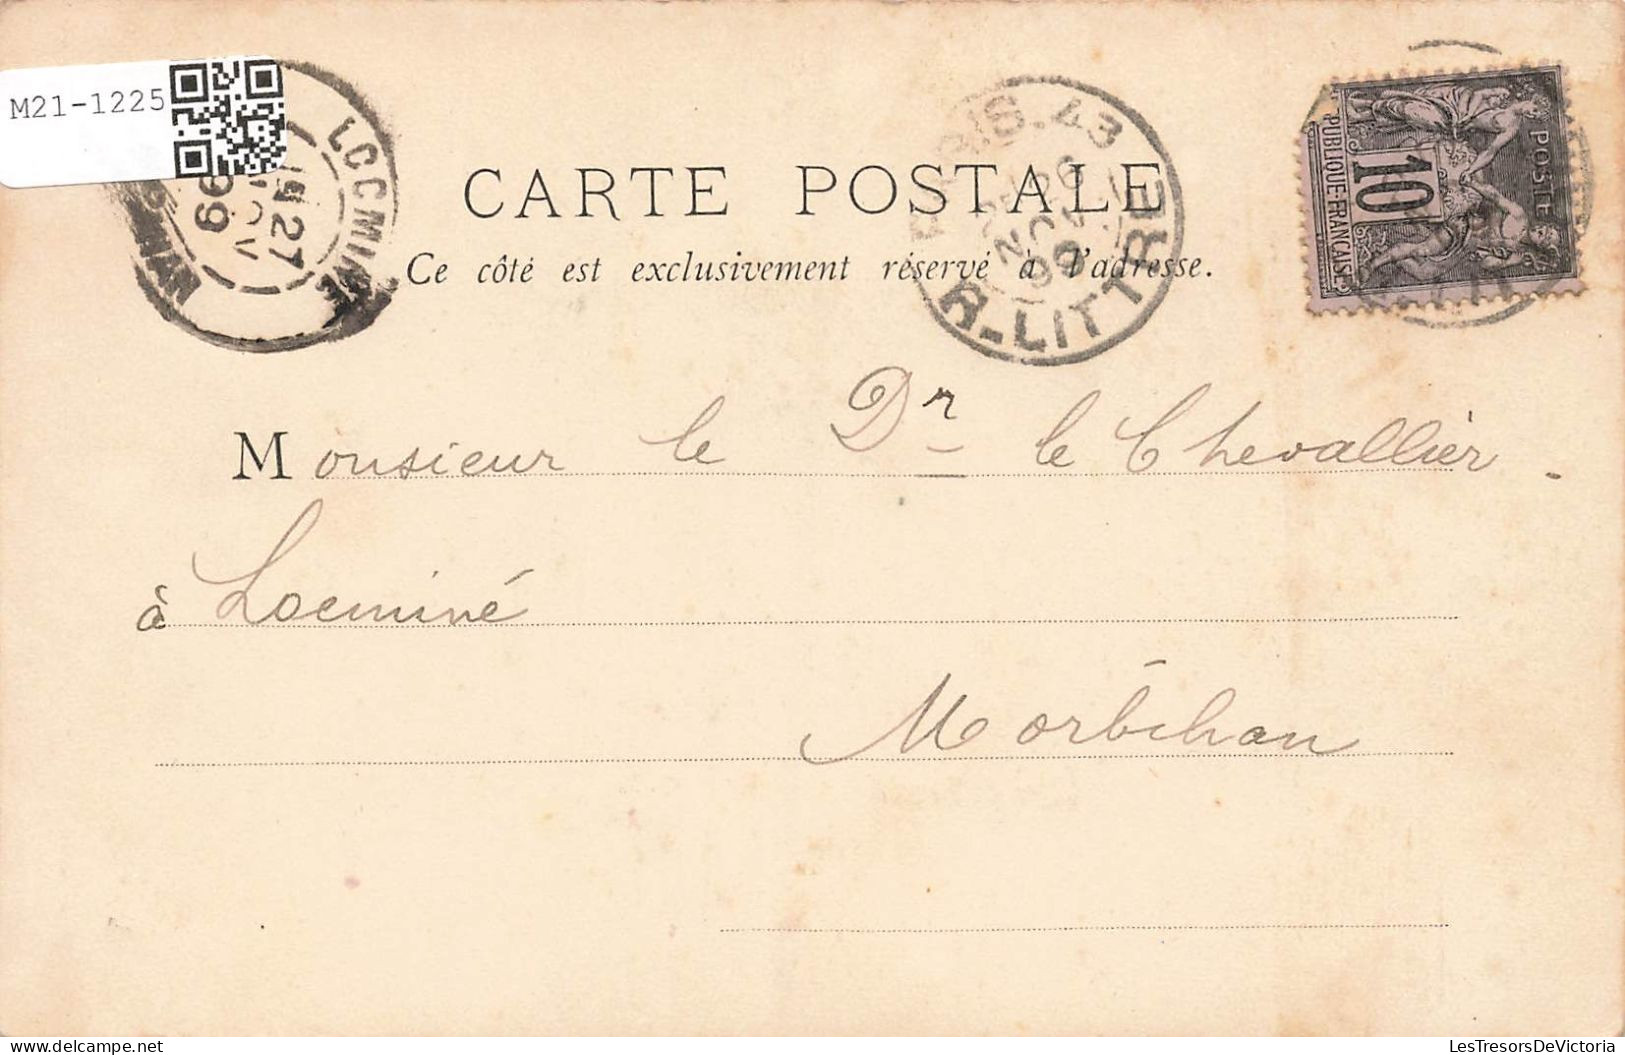 M21-1225
LOCMINÉ
21
NOV
99
CARTE POSTALE
Ce côté est exclusivement réservé à l'adresse.
PARIS.43
NOV
99
R-LITTRÉ
POSTE
10
REPUBLIQUE-FRANÇAISE
Monsieur le Dr le Chevallier.
à Locminé
Morbihan
LesTresorsDeVictoria